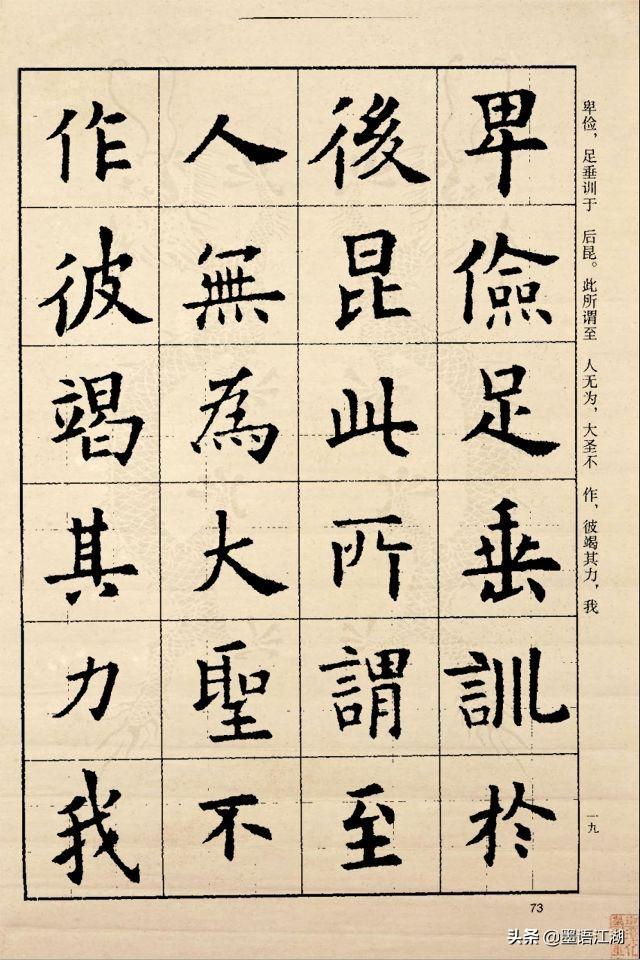 卑儉足垂訓於
後昆此所謂至
人無為大聖不
作彼竭其力我
卑俭，足垂训于 后昆。此所谓至 人无为，大圣不 作，彼竭其力，我
一九
73
头条 @墨语江湖